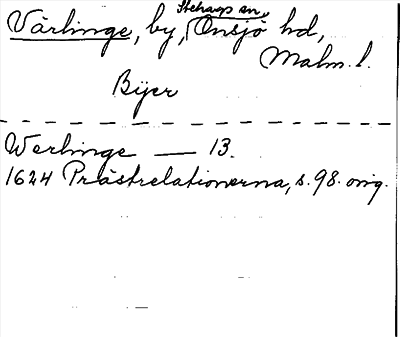 Värlinge, by, Stehags sn., Onsjö hd,
Malm. l.
Bijer
Werlinge — 13.
1624 Prästrelationerna, s. 98. orig.